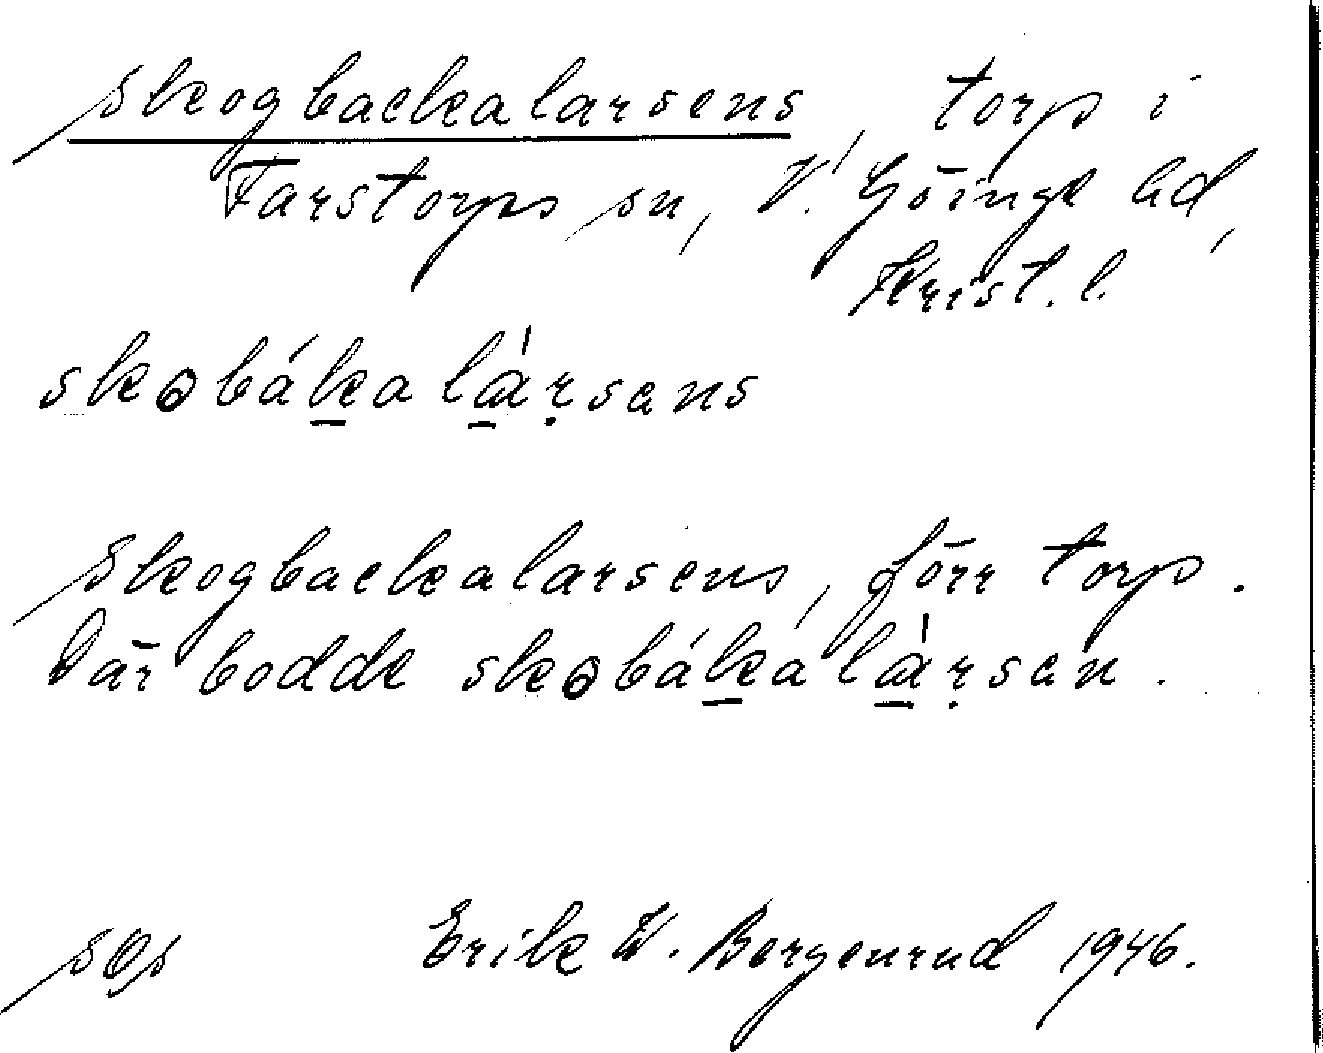 Skogbackalarsens, torp i
Farstorps sn, V. Göinge hd,
Krist. l.
skobákalàrsens
Skogbackalarsens, förr torp.
Där bodde skobákálàrsen.
Erik W. Bergenrud 1946.